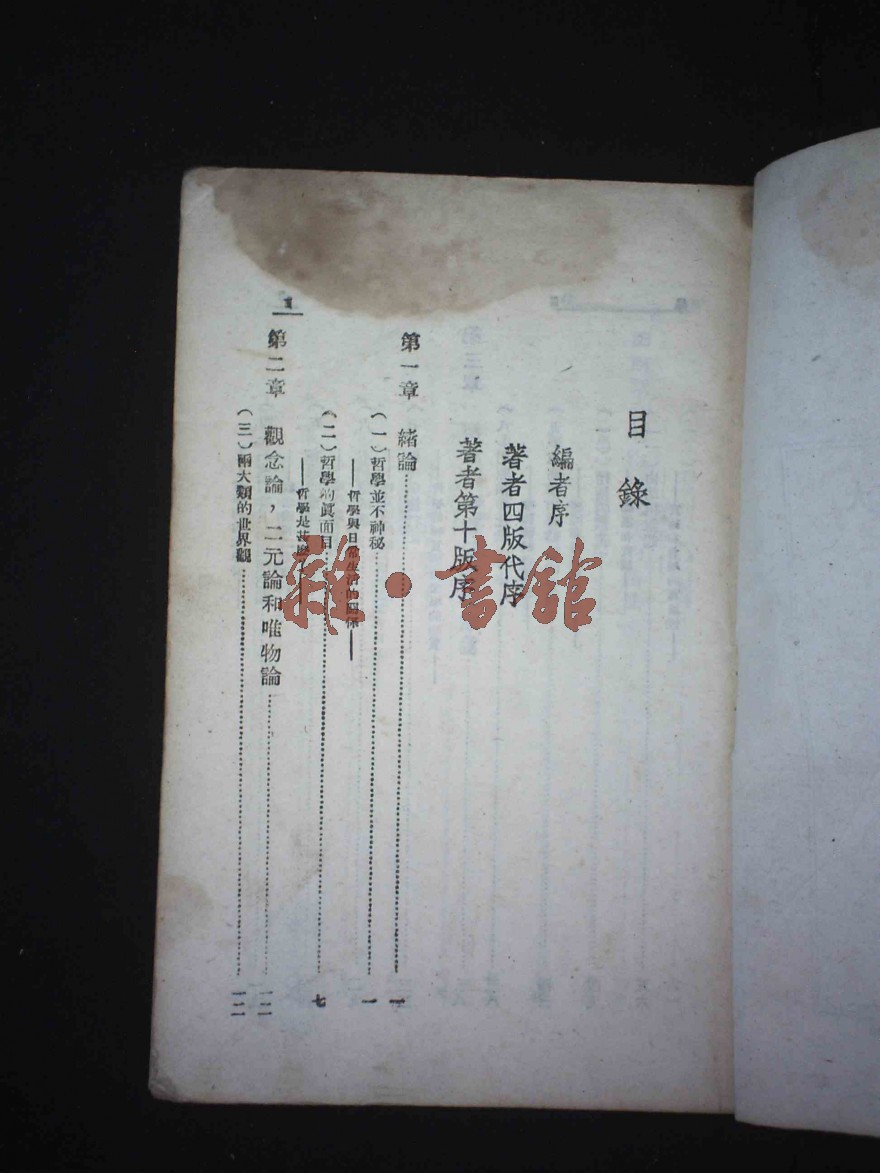 目錄
編者序
著者四版代序
著者第十版序
第一章 緒論……一
(一)哲學並不神秘……一
——哲學與日常生活的關係——
(二)哲學的眞面目……七
——哲學是甚麼
第二章 觀念論，二元論和唯物論……一二
(三)兩大類的世界觀……一二
1
雜·書館